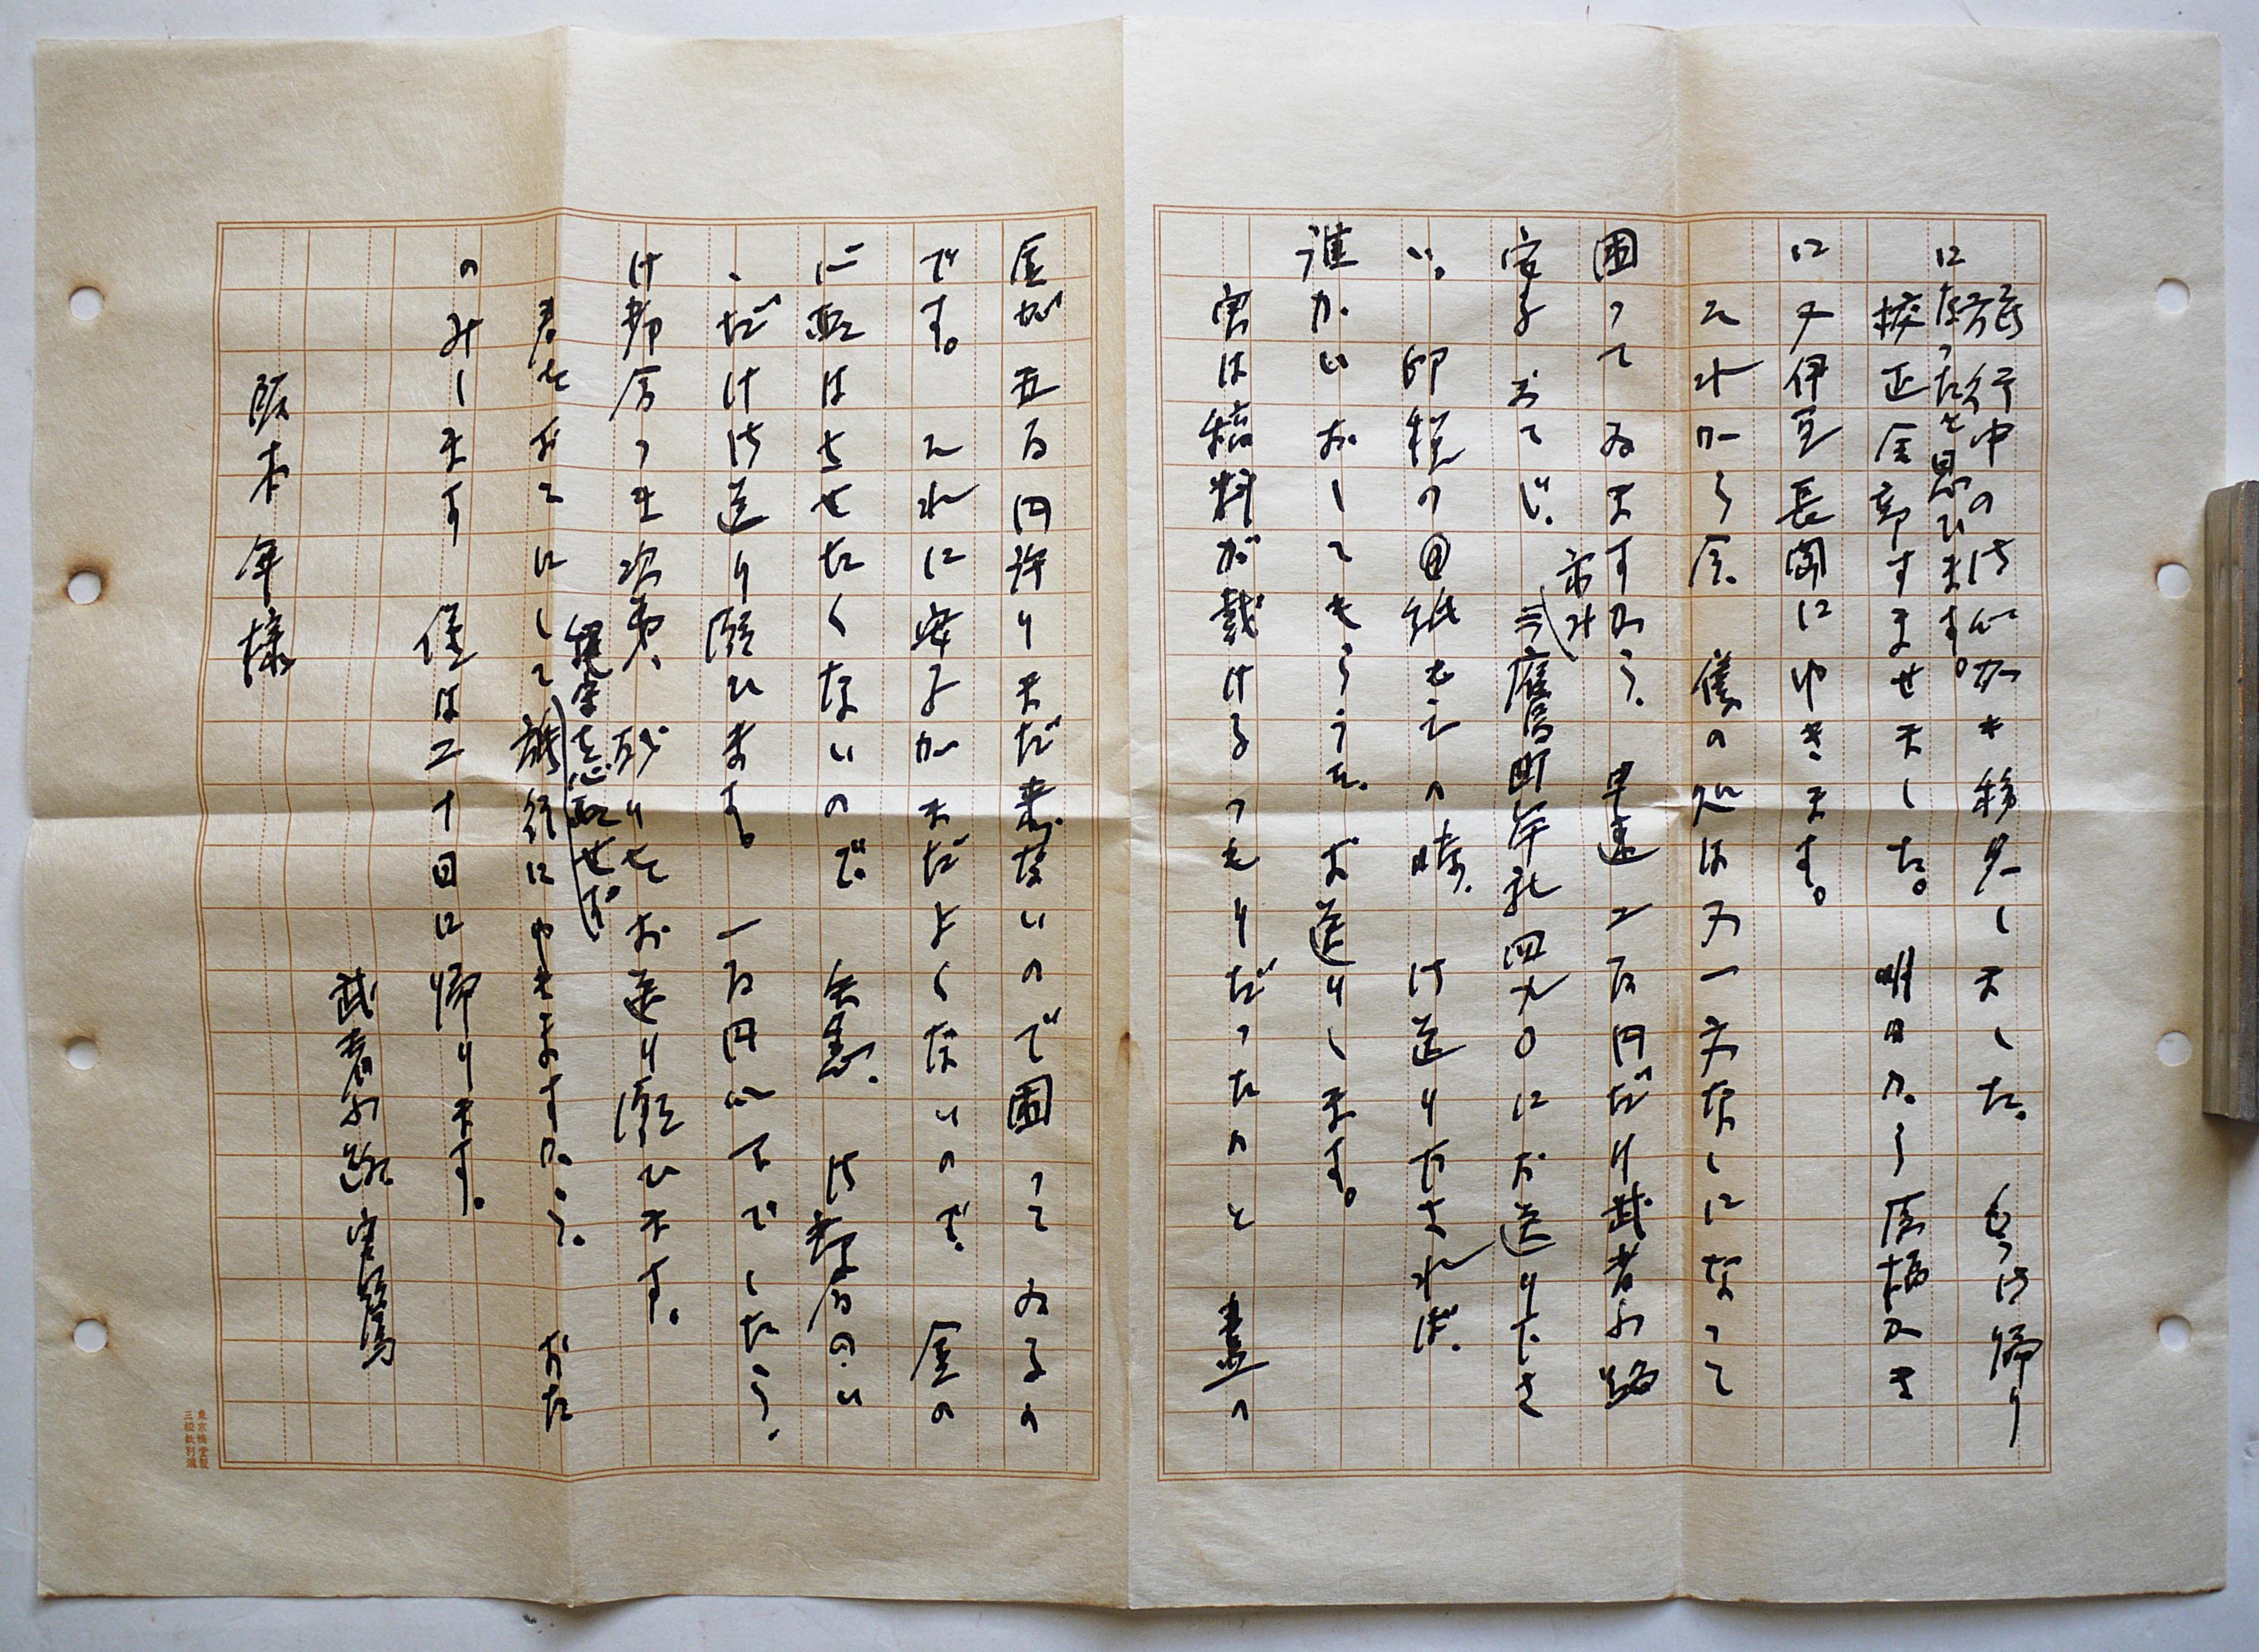 旅行中のはがき移多しました。もう御帰り
になったと思ひます。
校正全部すませました。明日から原稿かき
に又伊豆長岡にゆきます。
それから金、僕の処は又一文なしになって
困ってゐますから、早速二百円だけ武者小路
安子あてじ、市外三鷹台町牟礼四九〇にお送り下さ
い。印税の紙もその時、御送り下されば、
誰かにおしてもらって、お送りします。
実は稿料が戴けるつもりだったのと 畫の
金が五百円許りまだ来ないので困ってゐるの
です。それに安子がまだよくないので、金の
心配はさせたくないので 至急、御都合のい
ゝだけ御送り願ひます。一百円以下でしたら、
御都合つき次第、残りをお送り願ひます。
君をあてにして 後を心配せず 旅行にゆきますから。おた
のみします 僕は二十日に帰ります。
武者小路実篤
阪本 年様